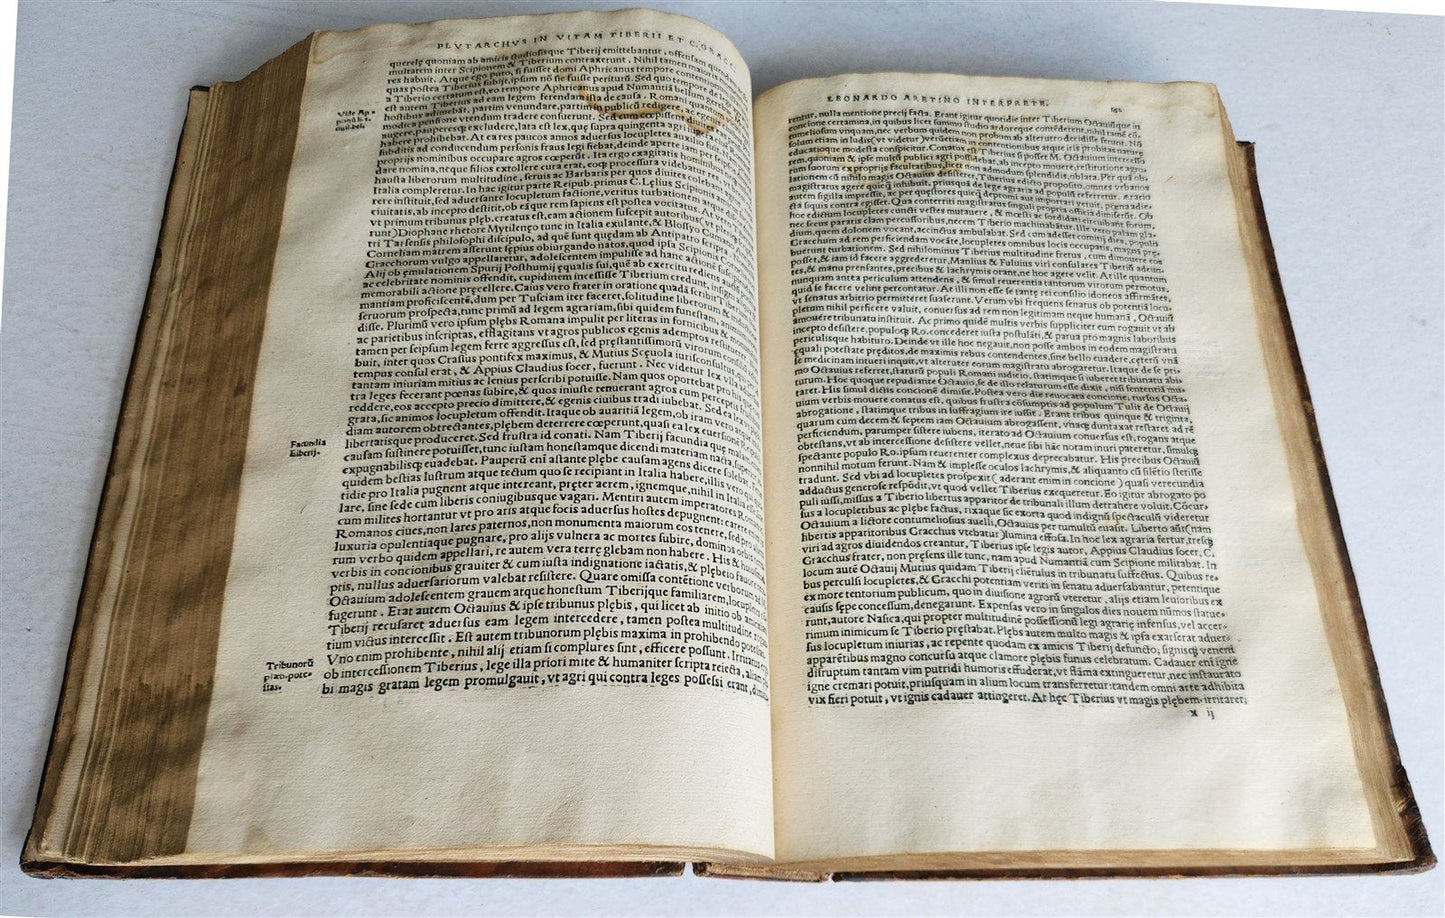 PLVTARCHVS IN VITAM TIBERII ET C. GRACC
querelę quoniam ab amicis studiosisque Tiberij emittebantur, offensam
multatem inter Scipionem & Tiberium contraxerunt. Nihil tamen maioris
rex habuit. Atque ego puto, si fuisset domi Aphricanus tempore contentionum
quas postea Tiberius subijt, ipsum nō sic fuisse periturū. Sed quo tempore de
a Tiberio certatum est, eo tempore Aphricanus apud Numantiā bellum gerebat
est autem Tiberius ad eam legem ferendam ista de causa. Romani quantum
hostibus adimebāt, partim venundare, partim in publicū redigere, ac
modica pensione vtendum tradere consuerunt. Sed cum cœpissent
augere, pauperesq; excludere, lata est lex, quę supra quingenta agri
habere prohibebat. At ea res paucos annos aduersus locupletes auxilio fuit
subditis ad conducendum personis fraus legi fiebat, deinde aperte iam per se
proprijs nominibus occupare agros cœperūt. Ita ergo exagitatis
dare nomina, neque filios extollere cura erat, eoq; processura videbatur res
hausta liberorum multitudine, seruis ac Barbaris per quos diuites colebant
Italia compleretur. In hac igitur parte Reipub. primus C. Lęlius Scipionis
rere instituit, sed aduersante locupletum factione, veritus turbationem atque
ciuitatis, ab incepto destitit, ob eāque rem sapiens est postea vocitatus. At Tiberius
vt primum tribunus plęb. creatus est, eam actionem suscepit autoribus (vt plerique
runt) Diophane rhetore Mytilenęo tunc in Italia exulante, & Blossyo Cumano
tri Tarsensis philosophi discipulo, ad quē sunt quędam ab Antipatro scripta
Corneliam matrem asserunt sępius obiurgando natos, quod ipsa Scipionis
Gracchorum vulgo appellaretur, adolescentem impulisse ad hanc actionem
Alij ob ęmulationem Spurij Posthumij ęqualis sui, quē ab exercitu rediens
ac celebritate nominis offendit, cupidinem incessisse Tiberium credunt, insigni
memorabili actione pręcellere. Caius vero frater in oratione quadā scribit Tiberium
mantiam proficiscentē, dum per Tusciam iter faceret, solitudine liberorum &
seruorum prospecta, tunc primū ad legem agrariam, sibi quidem funestam, animum
disse. Plurimū vero ipsum plębs Romana impulit per literas in fornicibus &
ac parietibus inscriptas, efflagitans vt agros publicos egenis ademptos restitueret
tamen per seipsum legem ferre aggressus est, sed pręstantissimorū virorum consilio
buit, inter quos Crassus pontifex maximus, & Mutius Scęuola iurisconsultus
tempus consul erat, & Appius Claudius socer, fuerunt. Nec videtur lex vlla
tantam iniuriam mitius ac lenius perscribi potuisse. Nam quos oportebat pro
tra leges fecerant pœnas subire, & quos iniuste tenuerant agros cum pecuniis
reddere, eos accepto precio dimittere, & egenis ciuibus tradi iubebat. Sed ea lex
grata, sic animos locupletum offendit. Itaque ob auaritiā legem, ob iram vero
diam autorem obtrectantes, plębem deterrere cœperunt, quasi ea lex euersionē
libertatisque produceret. Sed frustra id conati. Nam Tiberij facundia quę malam
causam sustinere potuisset, tunc iustam honestamque dicendi materiam nacta, superabat
expugnabilisq; euadebat. Pauperū eni astante plębe causam agens dicere solebat
quidem bestias lustrum atque tectum quo se recipiant in Italia habere, illis vero qui
tidie pro Italia pugnent atque intereant, pręter aerem, ignemque, nihil in Italia
lare, sine sede cum liberis coniugibusque vagari. Mentiri autem imperatores Romanos
cum milites hortantur vt pro aris atque focis aduersus hostes depugnent: carere enim
Romanos ciues, non lares paternos, non monumenta maiorum eos tenere, sed pro
luxuria opulentiaque pugnare, pro alijs vulnera ac mortes subire, dominos orbis
rum verbo quidem appellari, re autem vera terrę glebam non habere. His & huiusmodi
verbis in concionibus grauiter & cum iusta indignatione iactatis, & plębeio fauore
ptis, nullus aduersariorum valebat resistere. Quare omissa contētione verborum ad
Octauium adolescentem grauem atque honestum Tiberijque familiarem, locupletes
fugerunt. Erat autem Octauius & ipse tribunus plębis, qui licet ab initio ob amicitiam
Tiberij recusaret aduersus eam legem intercedere, tamen postea multitudine
tium victus intercessit. Est autem tribunorum plębis maxima in prohibendo potestas.
Vno enim prohibente, nihil alij etiam si complures sint, efficere possunt. Irritatus
ob intercessionem Tiberius, lege illa priori mite & humaniter scripta reiecta, aliam
bi magis gratam legem promulgauit, vt agri qui contra leges possessi erant,
Vide Ap-
panū li. 1.
ciuil. bel.
Facundia
Tiberij.
Tribunorū
plæb. pote-
stas.
LEONARDO ARETINO INTERPRETE.
rentur, nulla mentione precij facta. Erant igitur quotidie inter Tiberium Octauiūque in
concione certamina, in quibus licet summo studio ardoreque contēderent, nihil tamē cō-
tumeliosum vnquam, nec verbum quidem non probum ab alterutro decidisse ferunt. Nō
solum etiam in ludis (vt videtur) verū etiam in contentionibus atque iris probitas naturę
educatioq; modesta conspicitur. Conatus est Tiberius si posset M. Octauium intercessio
rem, quoniam & ipse multū publici agri possidebat, ab incepto mouere, restitutione agro-
rum suorum ex proprijs facultatibus, licet non admodum splendidis, oblata. Per quā ob-
lationem cū nihilo magis Octauius desisteret, Tiberius edicto proposito, omnes vrbanos
magistratus agere quicq; inhibuit, priusquā de lege agraria ad populū referretur. Aerario
autem sigilla impressit, ac ne per quęstores quicq; depromi aut importari veniat, pœna adie-
cta siquis contra egisset. Qua conterriti magistratus singuli propria officia dimiserūt. Ob
hoc edictum locupletes cuncti vestes mutauere, & mœsti ac sordidati circuibant forum,
nec secus paratis clam percussoribus, necem Tiberio machinabātur. Ille vero palam gla-
dium, quem dolonem vocant, accinctus ambulabat. Sed cum adesset comitij dies, populū
Gracchum ad rem perficiendam vocāte, locupletes omnibus locis occupatis, magna prę-
buerunt turbationem. Sed nihilominus Tiberius multitudine fretus, cum dimouere eos
posset, & iam id facere aggrederetur, Manlius & Fuluius viri consulares Tiberiū adeun-
tes, & manu prensantes, precibus & lachrymis orant, ne hoc agere velit. At ille quantam
nunquam antea periculum attendens, & simul reuerentia tantorum virorum permotus,
quid se facere velint percontatur. At illi non esse se tantę rei consilio idoneos affirmātes,
vt senatus arbitrio permitteret suaserunt. Verum vbi frequens senatus ob potentiā locu-
pletum nihil perficere valuit, conuersus ad rem non legitimam neque humanā, Octauiū
amouere tribunatu instituit. Ac primo quidē multis verbis suppliciter eum rogauit vt ab
incepto desisteret, populoq; Ro. concederet iusta postulāti, & parua pro magnis laboribus
periculisque habituro. Deinde vt ille hoc negauit, non posse ambos in eodem magistratu
ęquali potestate pręditos, de maximis rebus contendentes, sine bello euadere, cęterū vnā
se medicinam intueri inquit, vt alteruter eorum magistratu abrogaretur. Itaque de se pri-
mo Octauius referret, staturū populi Romani iudicio, statimque si iuberet tribunatu abi-
turum. Hoc quoque repudiante Octauio, se de illo relaturum esse dixit, nisi sententiā mu-
taret. His simul dictis concionē dimisit. Postera vero die reuocata concione, rursus Octa-
uium verbis mouere conatus est, quibus frustra cōsumptis ad populum Tulit de Octauij
abrogatione, statimque tribus in suffragium ire iussit. Erant tribus quinque & triginta,
quarum cum decem & septem iam Octauium abrogassent, vnaq; duntaxat restaret ad rē
perficiendum, parumper sistere iubens, iterato ad Octauium conuersus est, rogans atque
obtestans, vt ab intercessione desistere vellet, neue sibi hāc notam inuri pateretur, simulq;
spectante populo Ro. ipsum reuerenter complexus deprecabatur. His precibus Octauiū
nonnihil motum ferunt. Nam & implesse oculos lachrymis, & aliquanto cū silētio stetisse
tradunt. Sed vbi ad locupletes prospexit (aderant enim in concione) quasi verecundia
adductus generose respōdit, vt quod vellet Tiberius exequeretur. Eo igitur abrogato po-
puli iussi, missus a Tiberio libertus apparitor de tribunali illum detrahere voluit. Cōcur-
sus a locupletibus ac plębe factus, rixaque sic exorta quod indignū spectaculū videretur
Octauium a lictore contumeliosius auelli, Octauius per tumultū euasit. Liberto autē (nam
libertis apparitoribus Gracchus vtebatur) lumina effossa. In hoc lex agraria fertur, tresq;
viri ad agros diuidendos creantur, Tiberius ipse legis autor, Appius Claudius socer, C.
Gracchus frater, non pręsens ille tunc, nam apud Numantiā cum Scipione militabat. In
locum autē Octauij Mutius quidam Tiberij cliētulus in tribunatu suffectus. Quibus re-
bus perculsi locupletes, & Gracchi potentiam veriti in senatu aduersabantur, petentique
ex more tentorium publicum, quo in diuisione agrorū vteretur, alijs etiam leuioribus ex
causis sępe concessum, denegarunt. Expensas vero in singulos dies nouem nūmos statue-
runt, autore Nasica, qui propter multitudinē possessionū legi agrarię infensus, vel acer-
rimum inimicum se Tiberio pręstabat. Plębs autem multo magis & ipsa exarserat aduer-
sus locupletum iniurias, ac repente quodam ex amicis Tiberij defuncto, signisq; veneni
apparētibus magno concursu atque clamore plębis funus celebratum. Cadauer enī igne
disruptum tantam vim putridi humoris effuderat, vt flāma extingueretur, nec instaurato
igne cremari potuit, priusquam in alium locum transferretur: tandem omni arte adhibita
vix fieri potuit, vt ignis cadauer attingeret. At hęc Tiberius vt magis plębem irritaret,
x ij